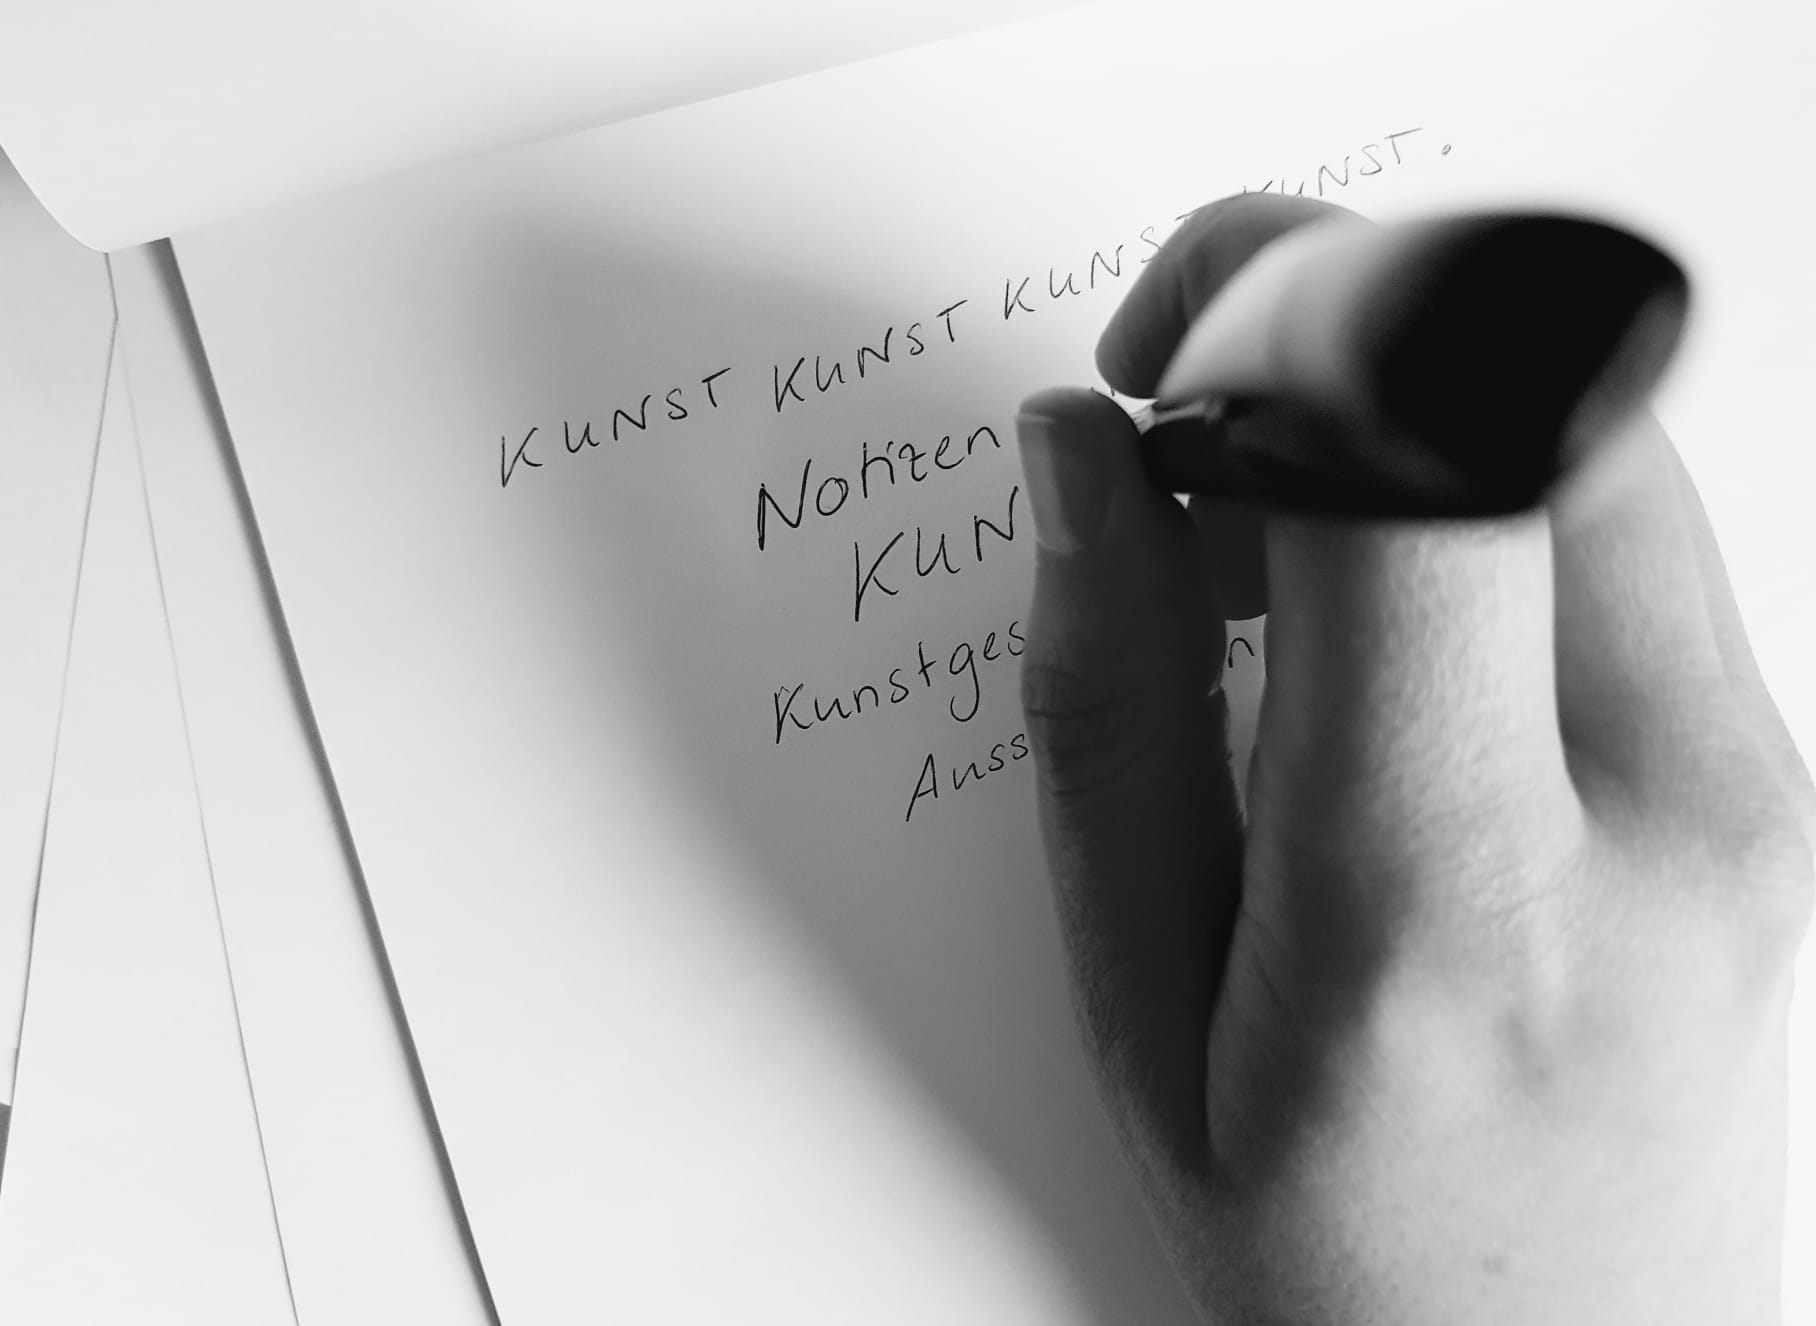 KUNST KUNST KUNST KUNST.
Notizen
KUN
Kunstges n
Auss